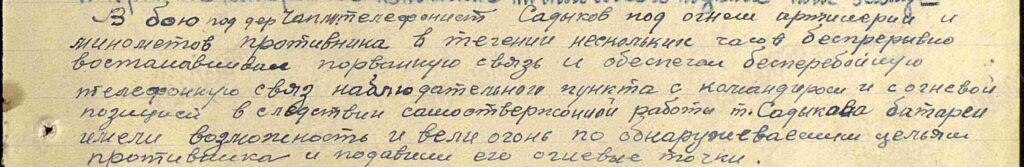 В бою под дер Чаплителефонист Садыков под огнем артилерий и
минометов противника в течении нескольких часов беспреривно
востанавливал порванную связь и обеспечал бесперебойную
телефонную связ наблюдательного пункта с командиром и с огневой
позицией в следствии самоотверженной работы т. Садыкова батареи
имели возможность и вели огонь по обнаруживаемим цельям
противника и подавили его огневые точки.